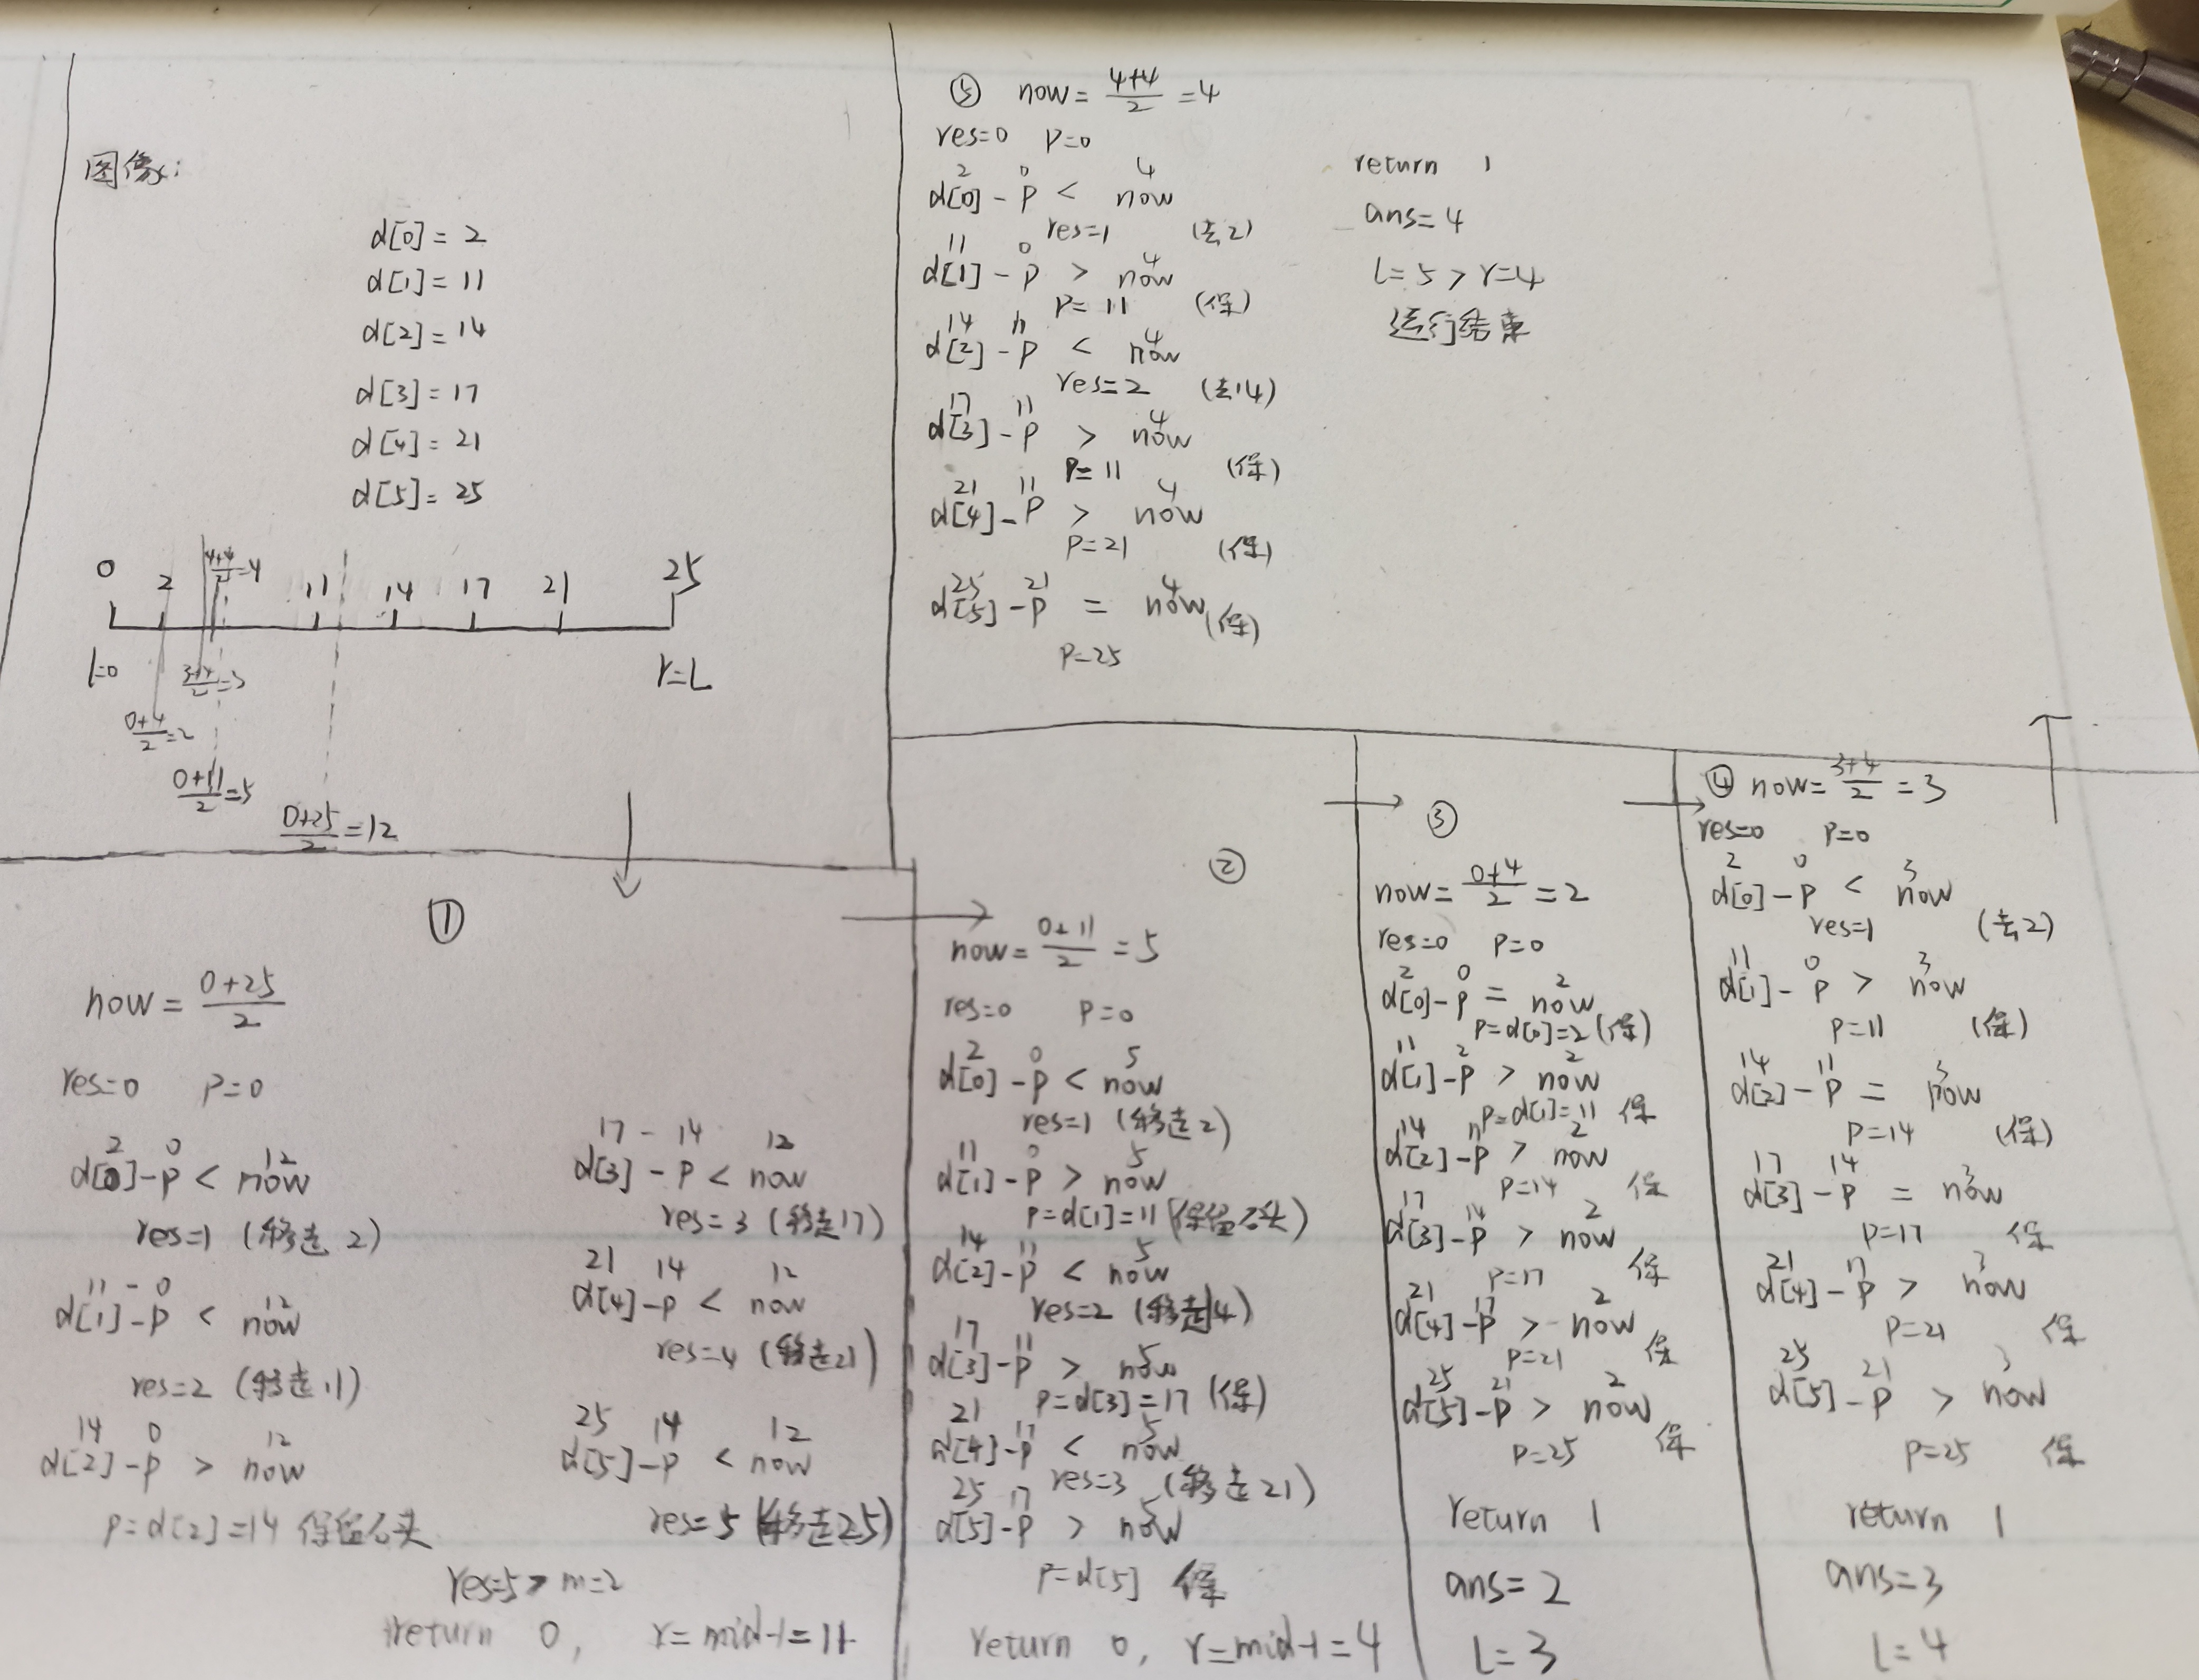 图像:
d[0] = 2
d[1] = 11
d[2] = 14
d[3] = 17
d[4] = 21
d[5] = 25
4+4/2=4
0 2 11 14 17 21 25
l=0 r=L
3+4/2=3
0+4/2=2
0+11/2=5
0+25/2=12
①
now = 0+25/2
res=0 P=0
2 0 12
d[0]-P < now
res=1 (移走2)
11 - 0 12
d[1]-P < now
res=2 (移走11)
14 0 12
d[2]-P > now
P=d[2]=14 保留石头
17 - 14 12
d[3]-P < now
res=3 (移走17)
21 14 12
d[4]-P < now
res=4 (移走21)
25 14 12
d[5]-P < now
res=5 (移走25)
res=5 > m=2
return 0, r=mid-1=11
②
now= 0+11/2 =5
res=0 P=0
2 0 5
d[0]-P < now
res=1 (移走2)
11 0 5
d[1]-P > now
P=d[1]=11 (保留石头)
14 11 5
d[2]-P < now
res=2 (移走14)
17 11 5
d[3]-P > now
P=d[3]=17 (保)
21 17 5
d[4]-P < now
res=3 (移走21)
25 17 5
d[5]-P > now
P=d[5] 保
return 0, r=mid-1=4
③
now= 0+4/2 =2
res=0 P=0
2 0 2
d[0]-P = now
P=d[0]=2 (保)
11 2 2
d[1]-P > now
P=d[1]=11 保
14 11 2
d[2]-P > now
P=14 保
17 14 2
d[3]-P > now
P=17 保
21 17 2
d[4]-P > now
P=21 保
25 21 2
d[5]-P > now
P=25 保
return 1
ans=2
l=3
④ now= 3+4/2 =3
res=0 P=0
2 0 3
d[0]-P < now
res=1 (去2)
11 0 3
d[1]-P > now
P=11 (保)
14 11 3
d[2]-P = now
P=14 (保)
17 14 3
d[3]-P = now
P=17 保
21 17 3
d[4]-P > now
P=21 保
25 21 3
d[5]-P > now
P=25 保
return 1
ans=3
l=4
⑤ now= 4+4/2 =4
res=0 P=0
2 0 4
d[0]-P < now
res=1 (去2)
11 0 4
d[1]-P > now
P=11 (保)
14 11 4
d[2]-P < now
res=2 (去14)
17 11 4
d[3]-P > now
P=11 (保)
21 11 4
d[4]-P > now
P=21 (保)
25 21 4
d[5]-P = now (保)
P=25
return 1
ans=4
l=5 > r=4
运行结束